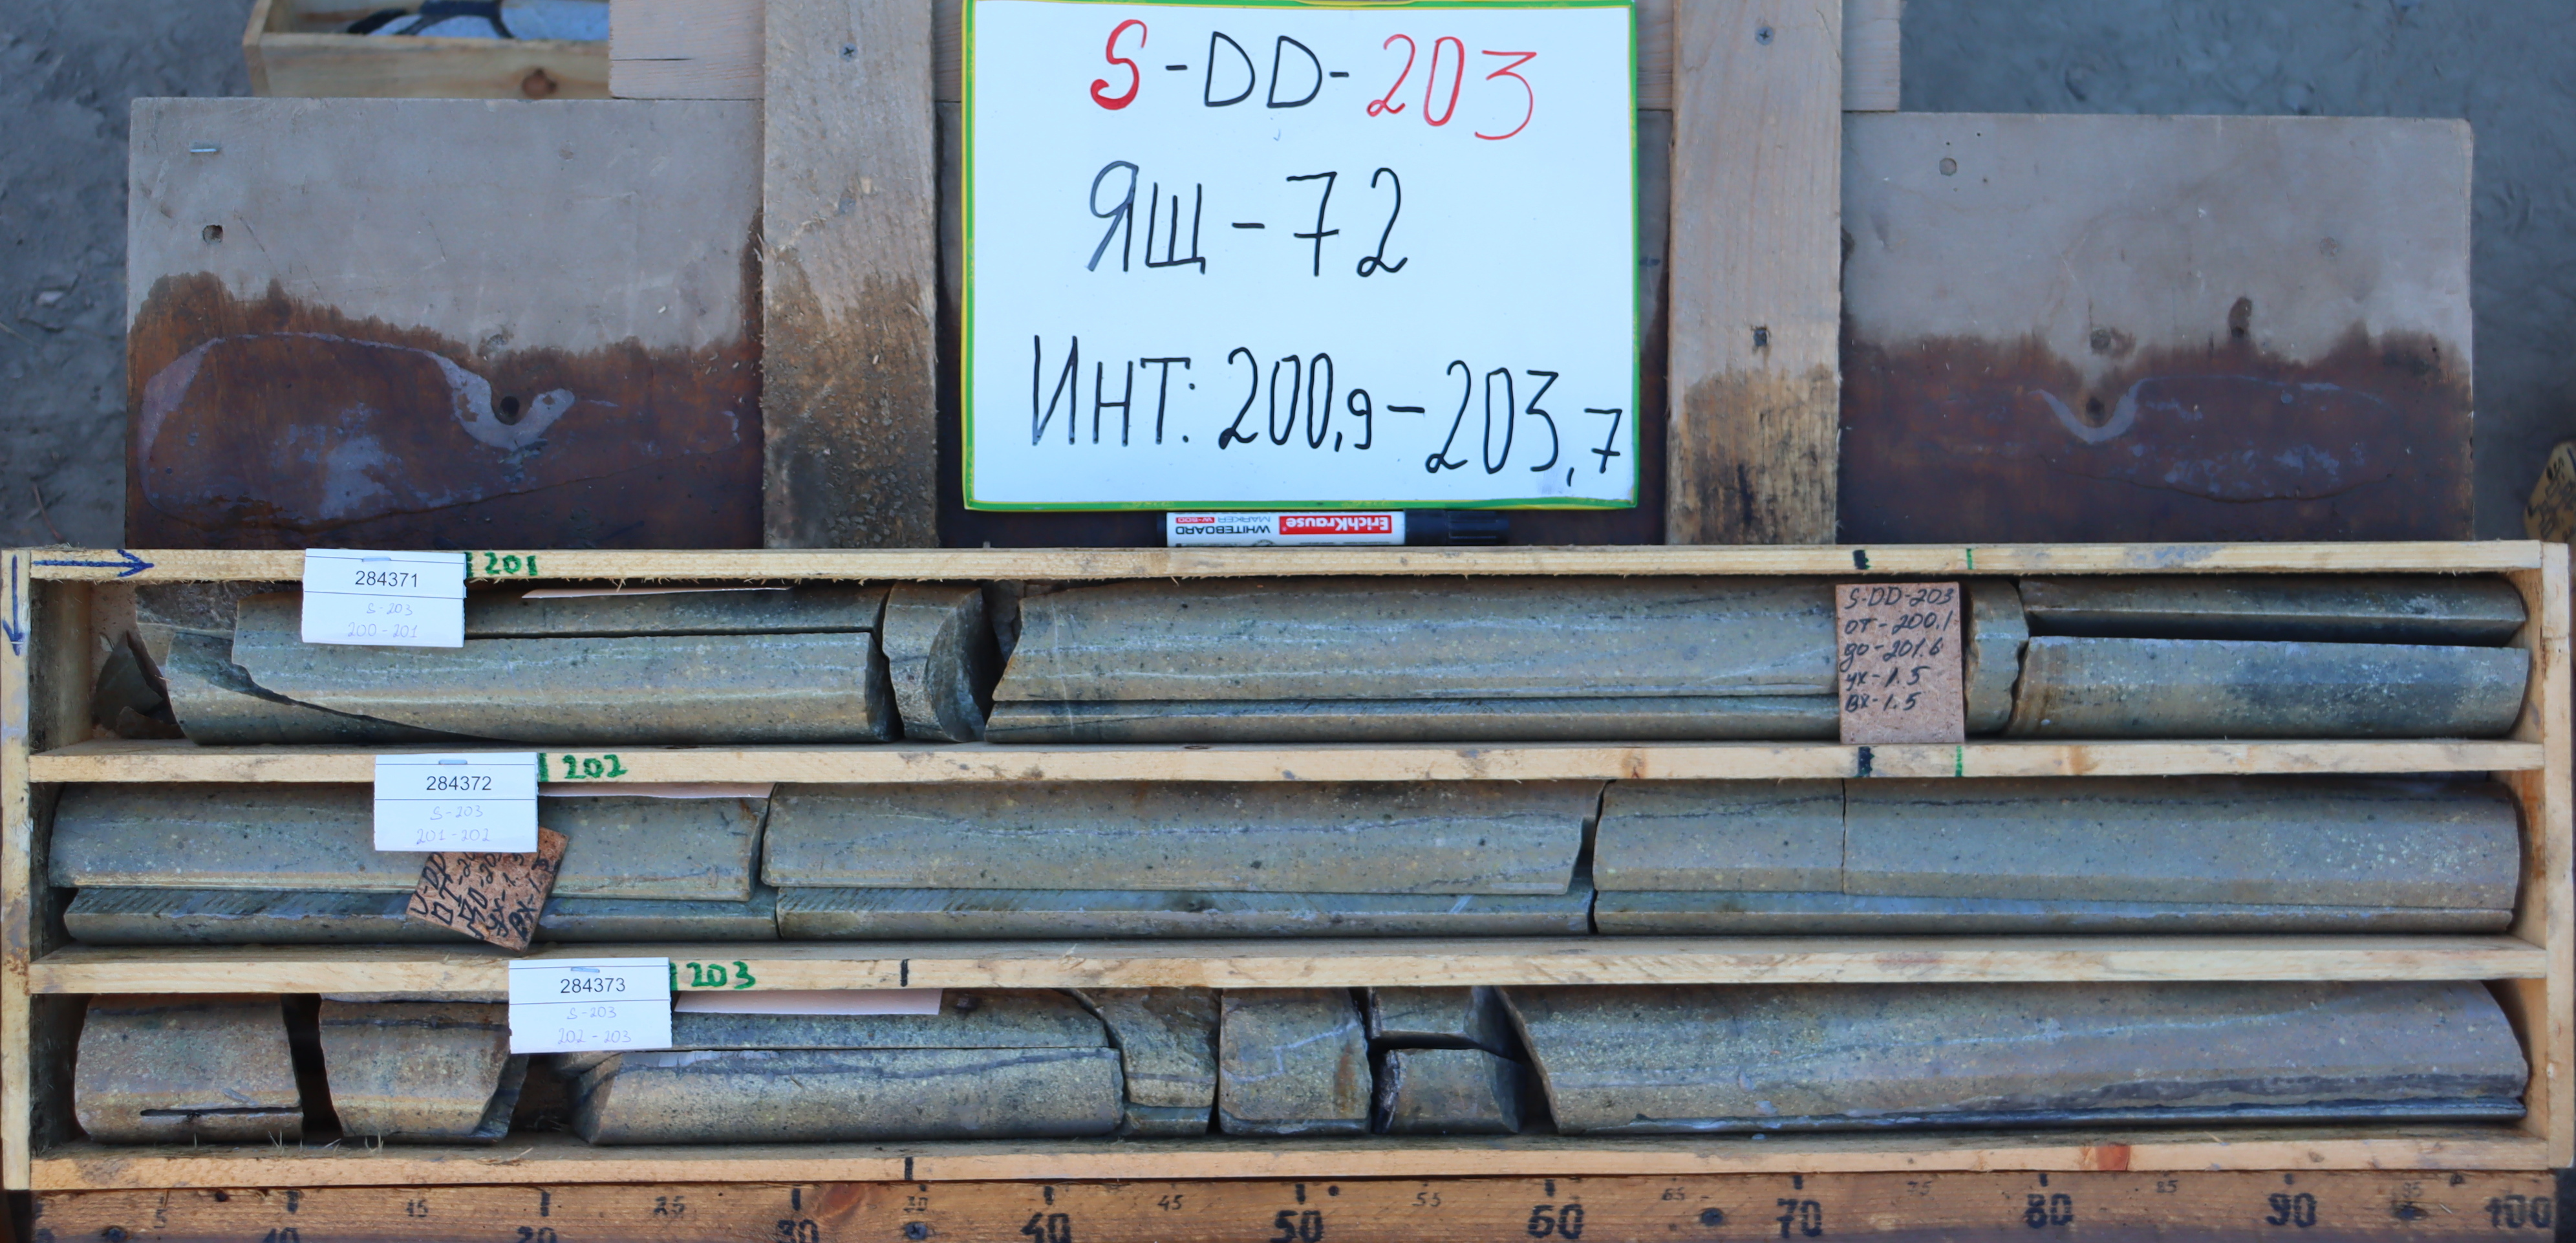 S-DD-203
ЯЩ-72
ИНТ: 200,9-203,7
ErichKrause
WHITEBOARD
MARKER W-500
201
284371
S-203
200-201
S-DD-203
от-200.1
до-201.6
ух-1.5
вх-1.5
202
284372
S-203
201-202
203
284373
S-203
202-203
10 15 20 25 30 40 45 50 55 60 65 70 75 80 85 90 95 100